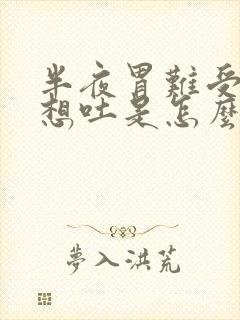 半夜胃難受
想吐是怎麼
夢入洪荒